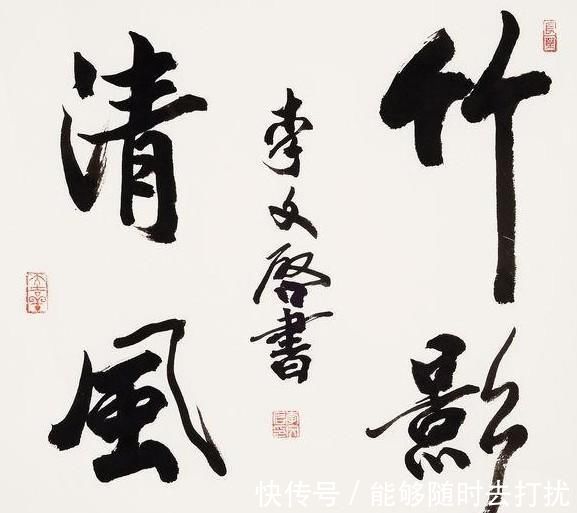 竹影
李文啓書
清風
快传号 / 能够随时去打扰